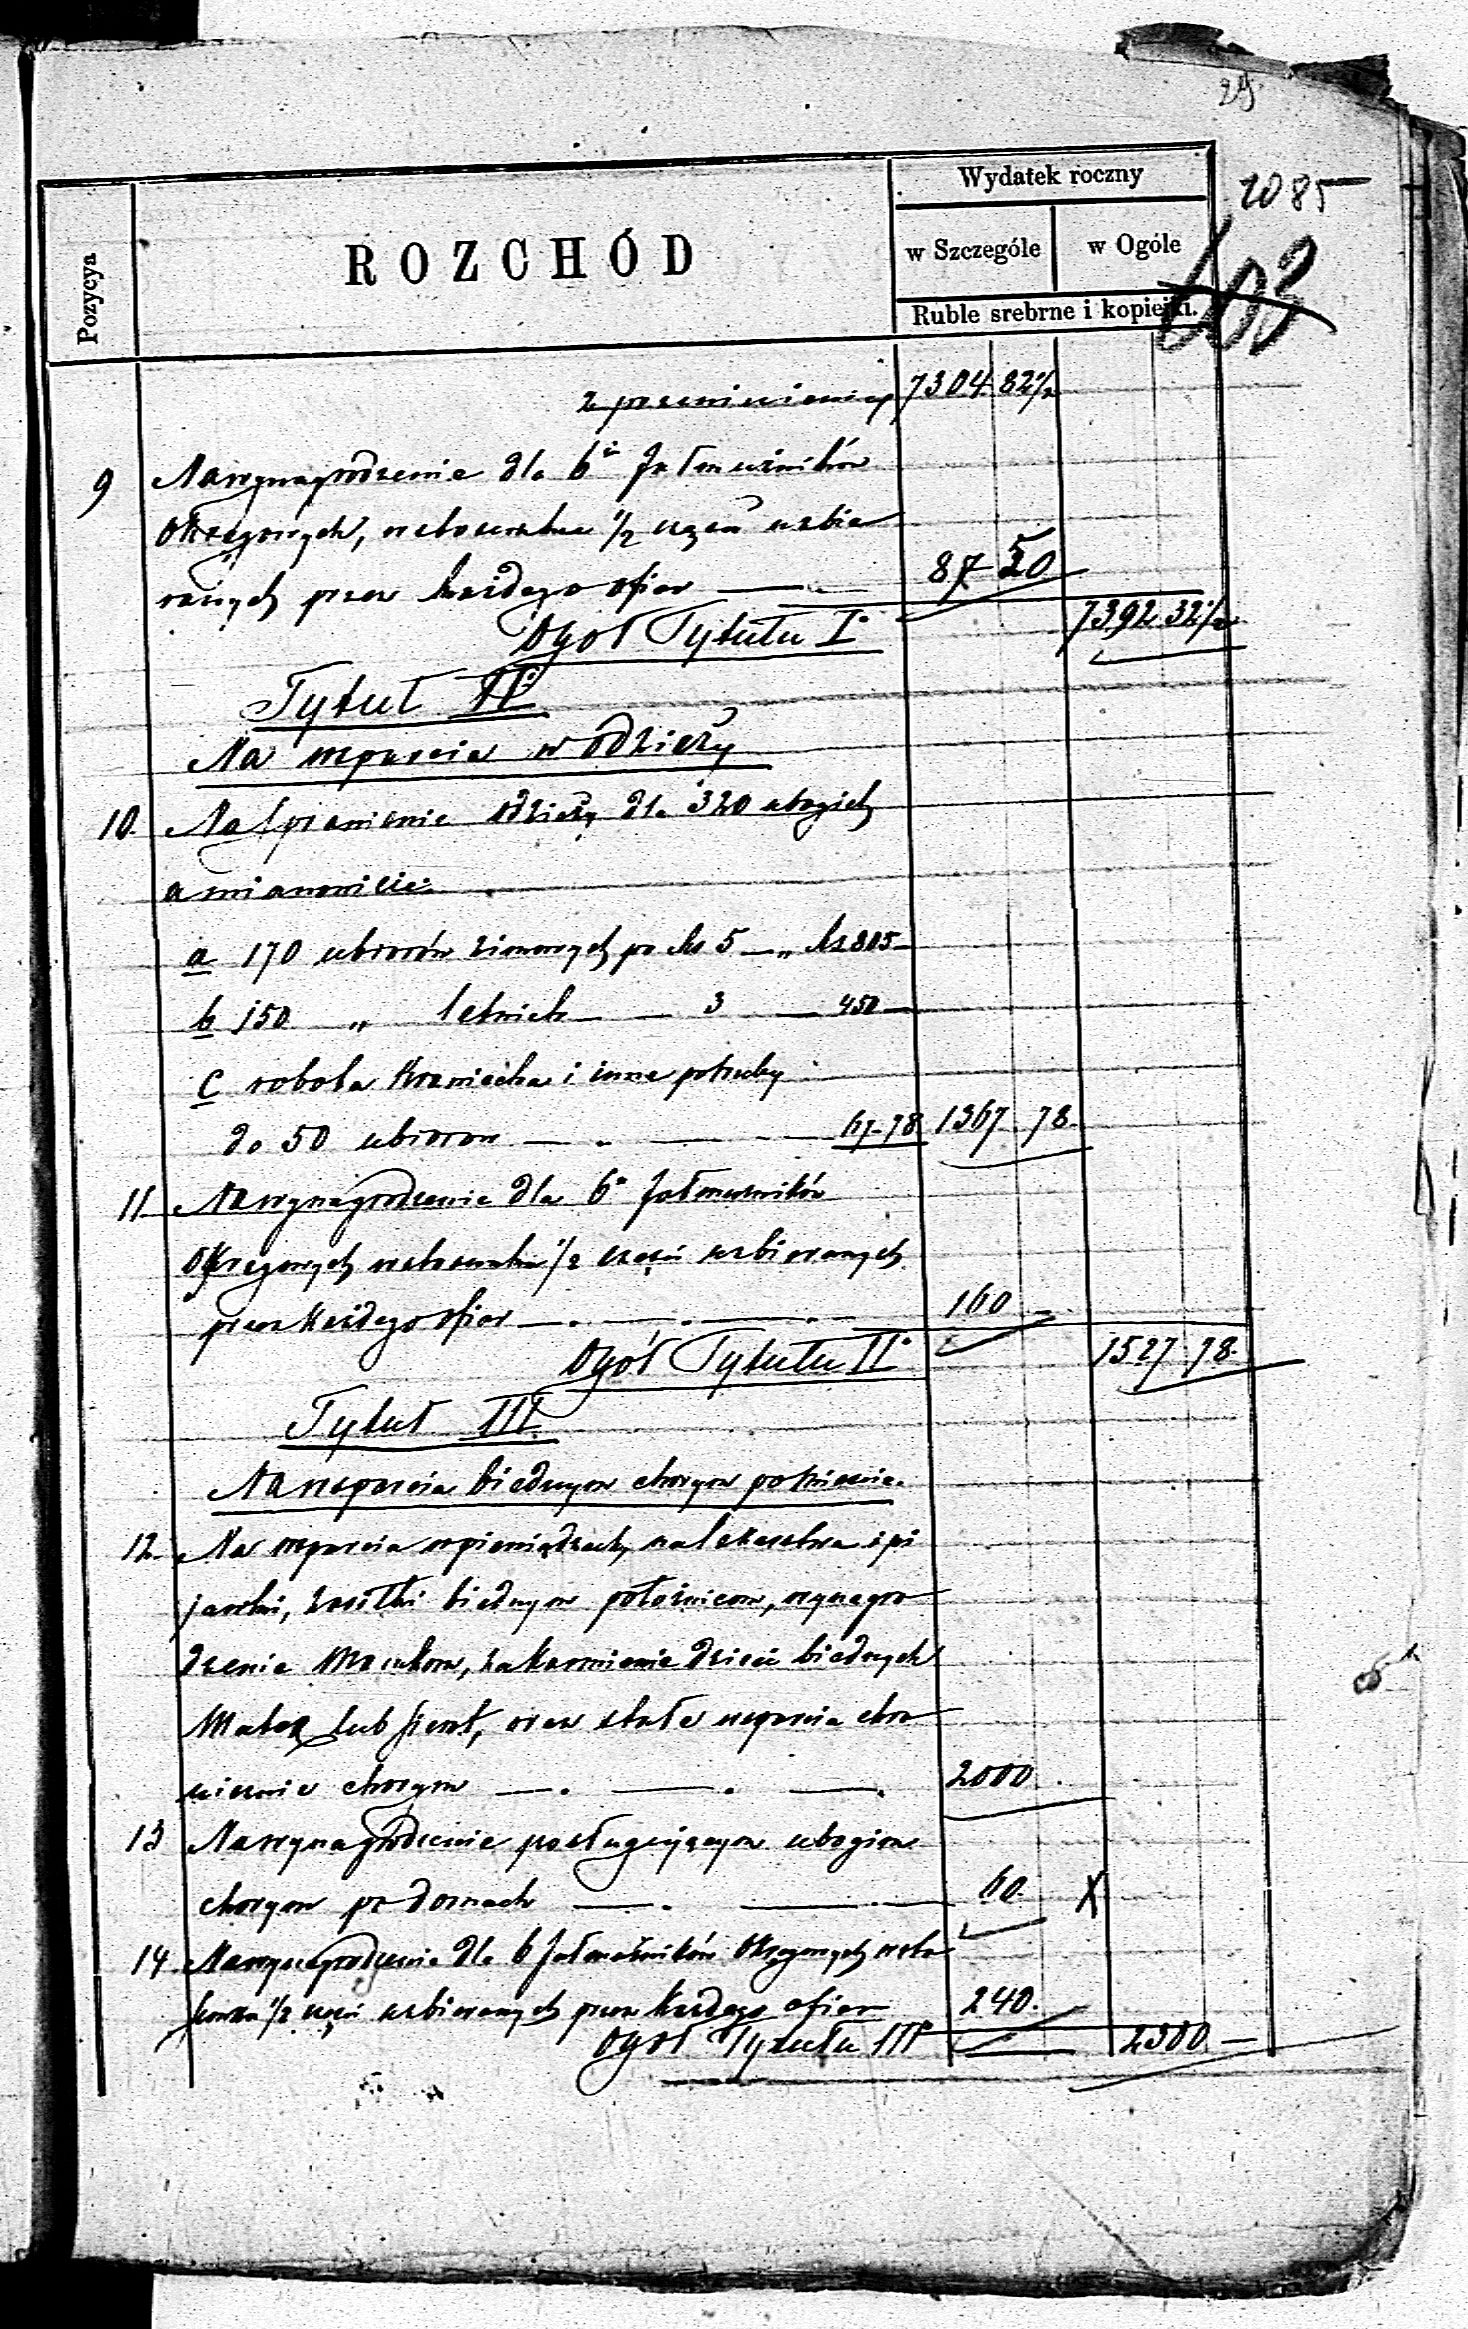 29
1085
603
Pozycya
ROZCHÓD
Wydatek roczny
w Szczególe
w Ogóle
Ruble srebrne i kopiejki.
z przeniesienia 7304. 82½
9 Na wynagrodzenie dla 6u Jałmużników
Okręgowych, w stosunku ½ części uzbie
ranych przez każdego ofiar 87 50
Ogół Tytułu I° 7392 32½
Tytuł II°
Na wsparcia w odzieży
10. Na sprawienie odzieży dla 320 ubogich
a mianowicie:
a 170 ubiorów zimowych po Rs 5 — „ Rs 805 —
b 150 „ letnich — 3 — 450 —
c robota krawiecka i inne potrzeby
do 50 ubiorów — 67-78 1367. 78.
11. Na wynagrodzenie dla 6u Jałmużników
Okręgowych w stosunku ½ części uzbieranych
przez każdego ofiar 160 —
Ogół Tytułu II° 1527. 78.
Tytuł III.
Na wsparcia biednym chorym
12. Na wsparcia w pieniądzach, na lekarstwa i pi
jawki, zasiłki biednym położnicom, wynagro
dzenie Mamkom, za karmienie dzieci biednych
Matek lub sierot, oraz stałe wsparcia chro
nicznie chorym 2000.
13 Na wynagrodzenie posługującym ubogim
chorym po domach 60. X
14. Na wynagrodzenie dla 6 Jałmużników Okręgowych w sto
sunku ½ części uzbieranych przez każdego ofiar 240.
Ogół Tytułu III° 2300. —